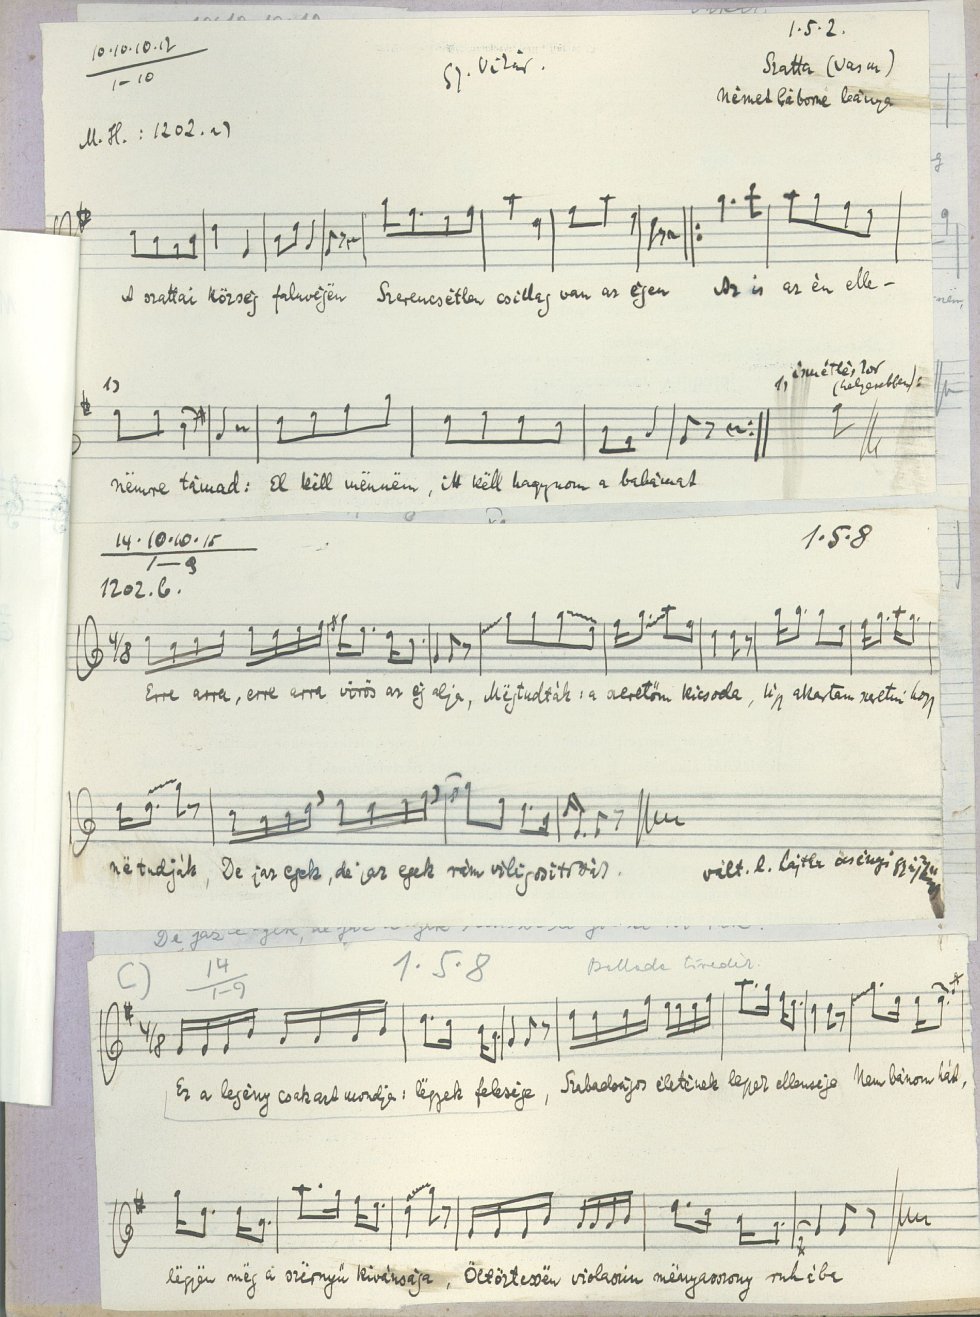 10.10.10.12
1–10
Gy. Vikár.
1.5.2.
Szatta (Vas m)
Német Gáborné leánya
M. H. : 1202.a)
A szattai község faluvégén Szerencsétlen csillag van az égen Az is az én elle-
1)
1) ismétléskor
(helyesebben):
nëmre támad: El këll mënnëm, itt këll hagynom a babámat
14.10.10.15
1–9
1202.b.
1.5.8
4/8
Erre arra, erre arra vörös az ég alja, Mëgtudták: a szeretőm kicsoda, Úgy akartam szeretni hogy
në tudják, De jaz egek, de jaz egek rám
vált. l. Lajtha
C)
14
1–9
1.5.8
Ballada töredék.
4/8
Ez a legény csak azt mondja: légyek felesége, Szabadságos életének legyek ellensége Nem bánom hát,
légyën mëg a szërnyű kivánsága, Öltöztessën violaszín mënyasszony ruhába